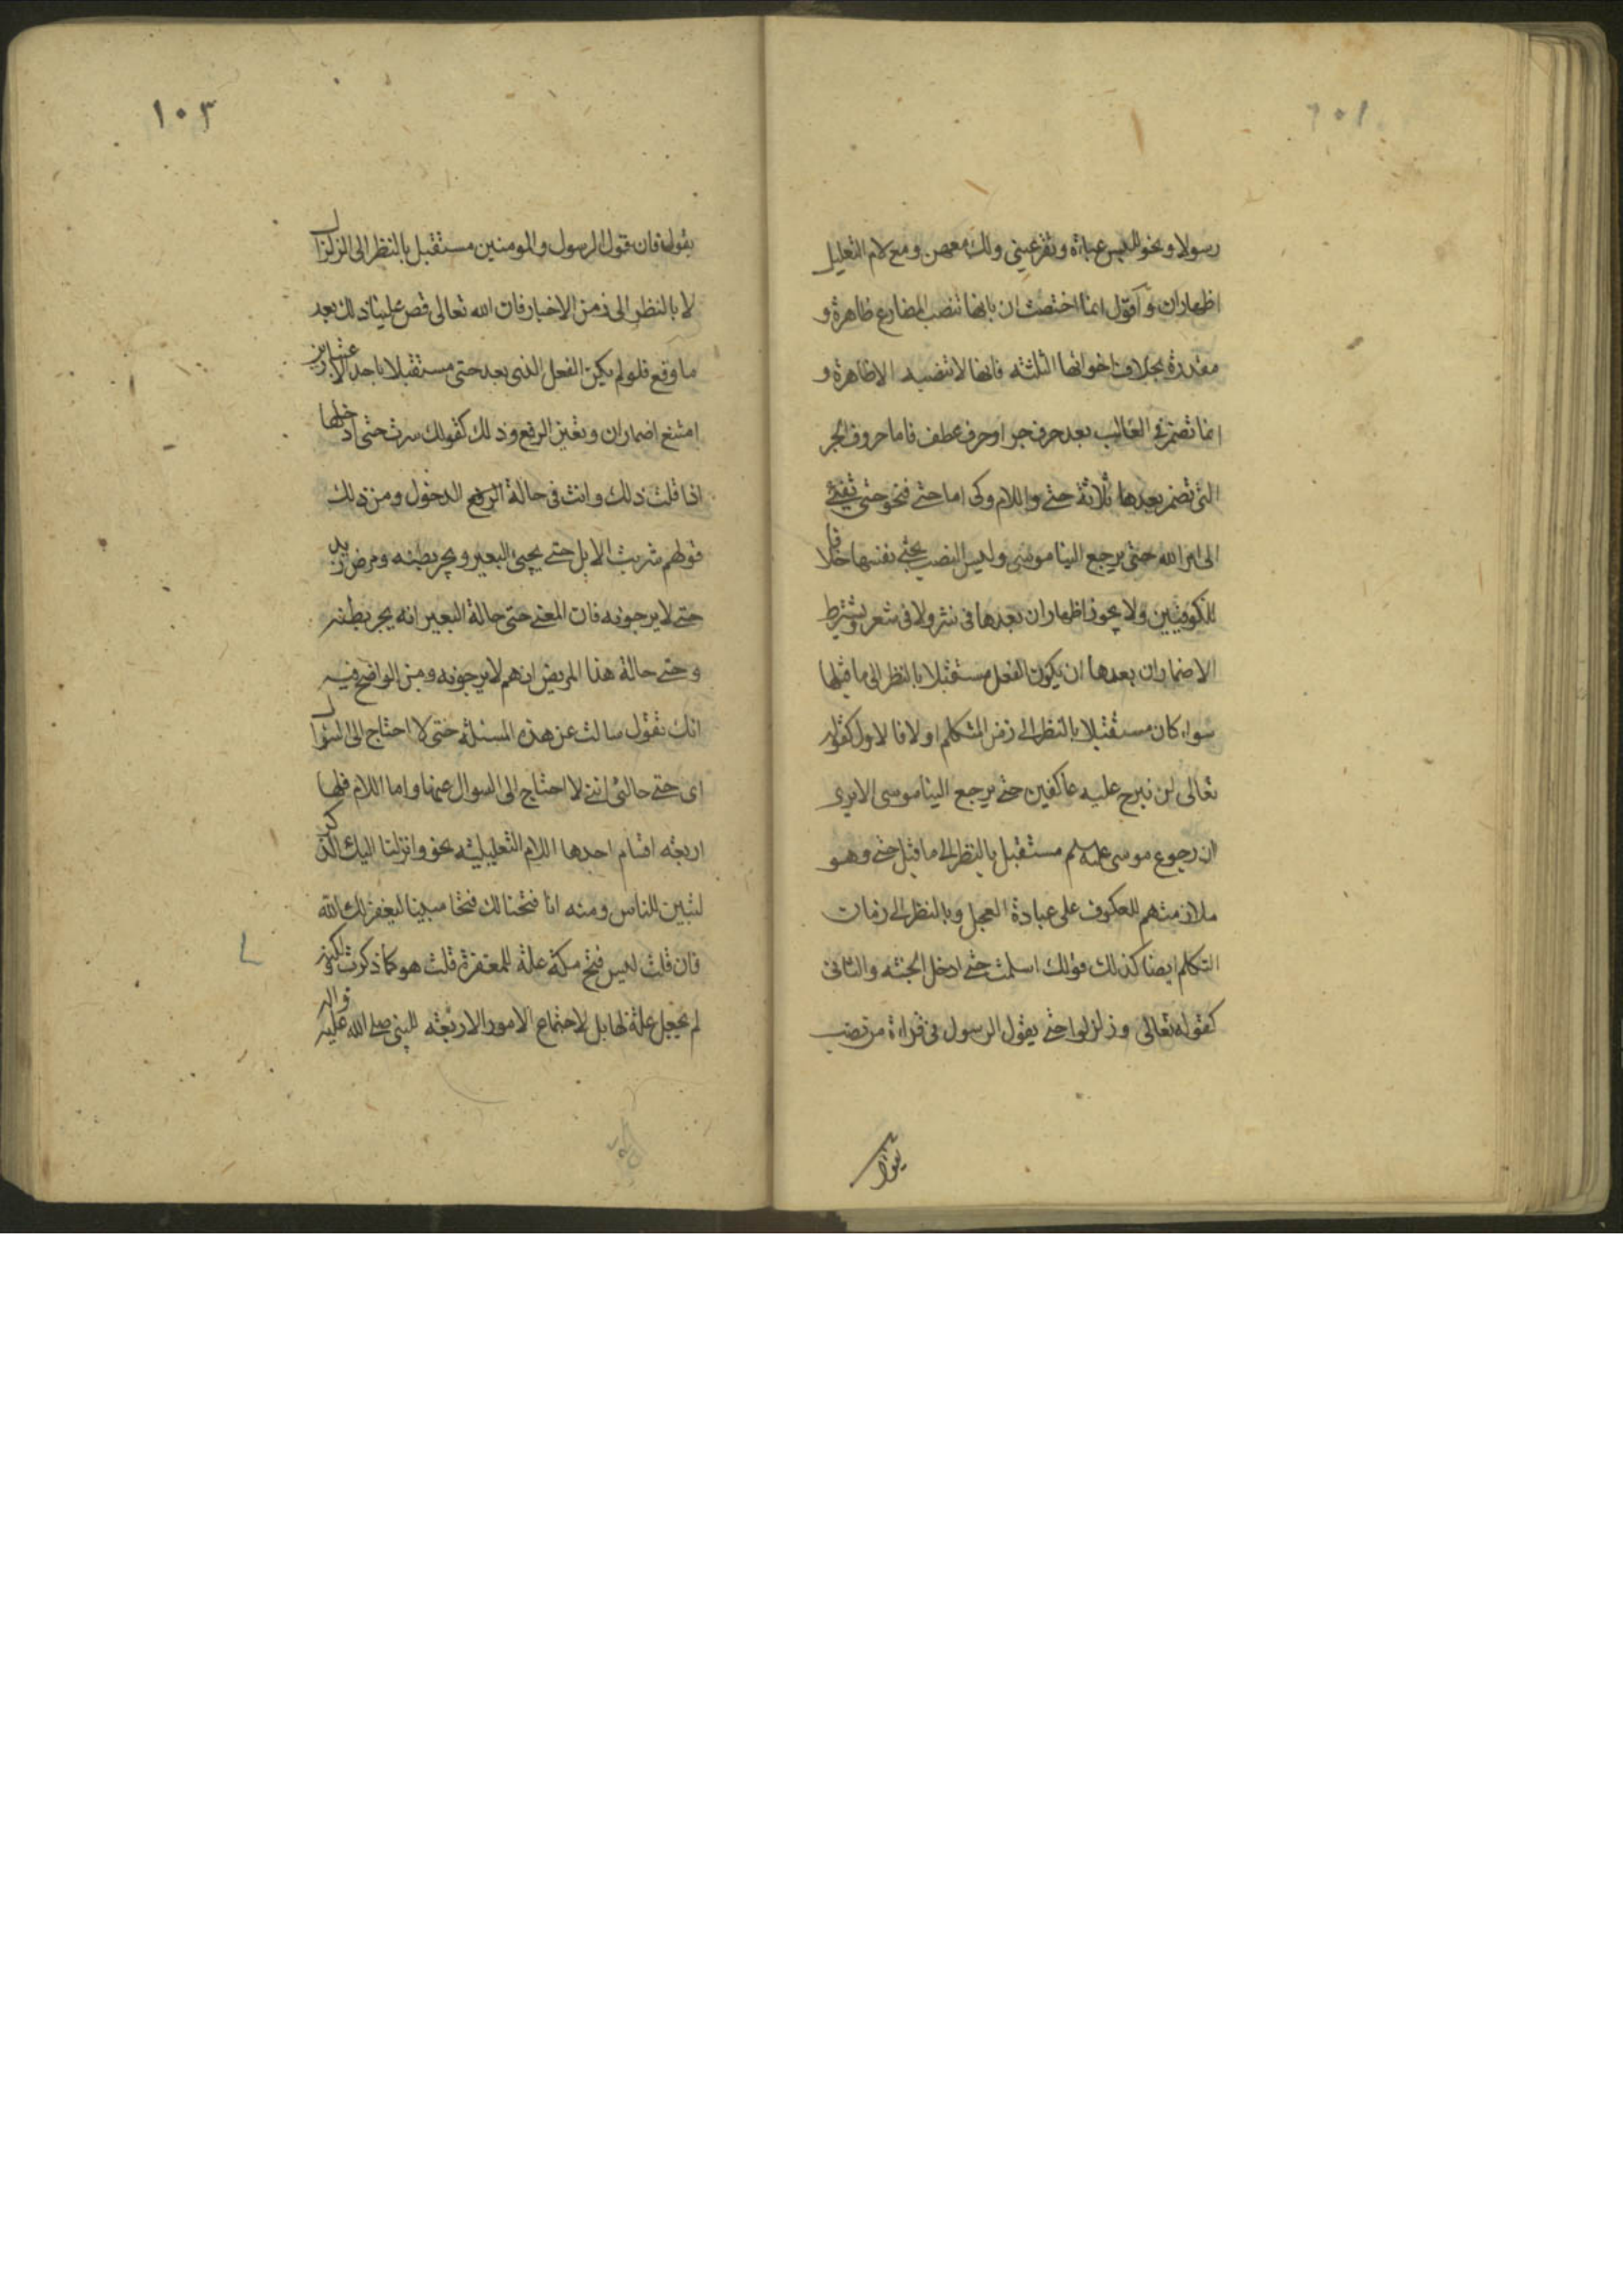 رسولا ونحو للبس عباءة وتقر عيني ولك معهن ومع لام التعليل
اظهار ان و اقول انما اختصت ان بانها تنصب المضارع ظاهرة و
مقدرة بخلاف اخواتها الثلثه فانها لا تنصبه الا ظاهرة و
انما تضمر في الغالب بعد حرف جر او حرف عطف فاما حروف الجر
التي تضمر بعدها ثلاثة حتى واللام وكى اما حتى فنحو حتى تفئ
الى امر الله حتى يرجع الينا موسى وليس النصب بحتى نفسها خلافا
للكوفيين ولا يجوز اظهار ان بعدها فى نثر ولا فى شعر ويشترط
الاضمار ان بعدها ان يكون الفعل مستقبلا بالنظر الى ما قبلها
سواء كان مستقبلا بالنظر الى زمن المتكلم اولا فالاول كقوله
تعالى لن نبرح عليه عاكفين حتى يرجع الينا موسى الا يرى
ان رجوع موسى عليه سلم مستقبل بالنظر الى ما قبل حتى وهو
ملازمتهم للعكوف على عبادة العجل وبالنظر الى زمان
التكلم ايضا كذلك قولك اسلمت حتى ادخل الجنه والثانى
كقوله تعالى وزلزلوا حتى يقول الرسول فى قراءة من نصب
يقول
١٠٣
يقول فان قول الرسول والمومنين مستقبل بالنظر الى الزلزال
لا بالنظر الى زمن الاخبار فان الله تعالى قص علينا ذلك بعد
ما وقع فلو لم يكن الفعل الذى بعد حتى مستقبلا باحد الاعتبارين
امتنع اضمار ان وتعين الرفع وذلك كقولك سرت حتى ادخلها
اذا قلت ذلك وانت فى حالة الرفع الدخول ومن ذلك
قولهم شربت الابل حتى يجئ البعير ويجر بطنه ومرض زيد
حتى لا يرجونه فان المعنى حتى حالة البعير انه يجر بطنه
وحتى حالة هذا المريض انهم لا يرجونه ومن الواضح فيه
انك تقول سالت عن هذه المسئلة حتى لا احتاج الى السؤال
اى حتى حالتى اننى لا احتاج الى السوال عنها واما اللام فلها
اربعه اقسام احدها اللام التعليليه نحو وانزلنا اليك الذكر
لتبين للناس ومنه انا فتحنا لك فتحا مبينا ليغفر لك الله
فان قلت ليس فتح مكة علة للمغفرة قلت هو كما ذكرت ولكنه
لم يجعل علة لها بل لاجتماع الامور الاربعه للنبى صلى الله عليه واله